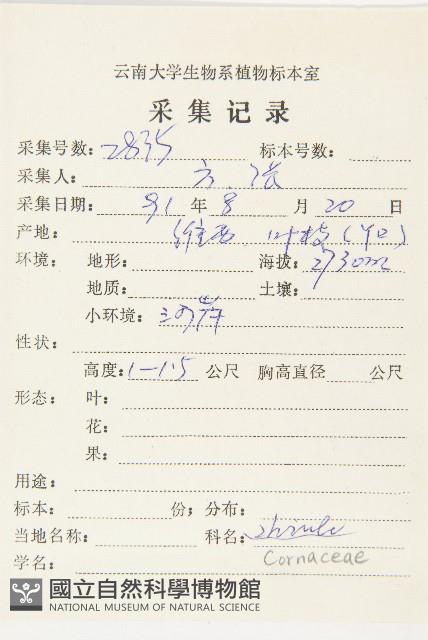 云南大学生物系植物标本室
采集记录
采集号数: 2835 标本号数:
采集人: 方、张
采集日期: 91 年 8 月 20 日
产地: 维西 叶枝
环境: 地形: 海拔: 2730m
地质: 土壤:
小环境:
性状:
高度: 1-1.5 公尺 胸高直径 公尺
形态: 叶:
花:
果:
用途:
标本: 份; 分布:
当地名称: 科名: shrub
Cornaceae
学名:
國立自然科學博物館
NATIONAL MUSEUM OF NATURAL SCIENCE